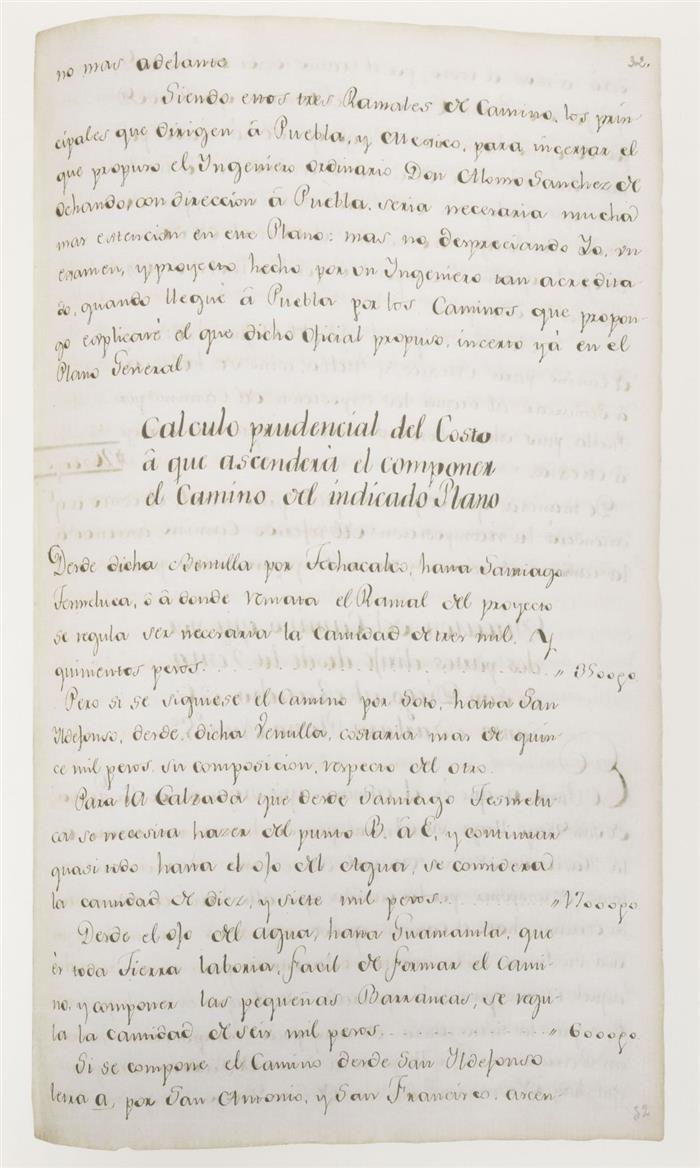 32.
no mas adelante
Siendo estos tres Ramales de Camino, los prin-
cipales que dirigen â Puebla, y Mexico, para incertar el
que propuso el Ingeniero ordinario Don Alonso Sanchez de
Ochando, con direccion â Puebla, seria necesaria mucha
mas estencion en este Plano: mas no despreciando Yo, un
examen, y proyecto hecho por un Ingeniero tan acredita-
do, quando llegue â Puebla por los Caminos, que propon-
go esplicarè el que dicho Oficial propuso, incerto yà en el
Plano General
Calculo prudencial del Costo
â que ascenderà el componer
el Camino del indicado Plano
Desde dicha Bentilla por Techacalco, hasta Santiago
Tesmeluca, ô â donde remata el Ramal del proyecto
se regula ser necesaria la cantidad de tres mil, y
quinientos pesos. . . . . . . . . . . . " 3500 po
Pero si se siguiese el Camino por Soto, hasta San
Ildefonso, desde dicha Ventilla, costaria mas de quin-
ce mil pesos su composicion, respecto del otro.
Para la Calzada que desde Santiago Tesmelu-
ca se necesita hazer del punto B. â E, y continuar
quasi todo hasta el ojo del Agua, se considera
la cantidad de diez, y siete mil pesos. . . . . . . " 17000 po
Desde el ojo del agua, hasta Guamantla, que
ès toda Tierra laboria, facil de formar el Cami-
no, y componer las pequeñas Barrancas, se regu-
la la cantidad de seis mil pesos. . . . . . . . . . " 6000 po
Si se compone el Camino desde San Ildefonso
letra a, por San Antonio, y San Francisco, ascen-
32